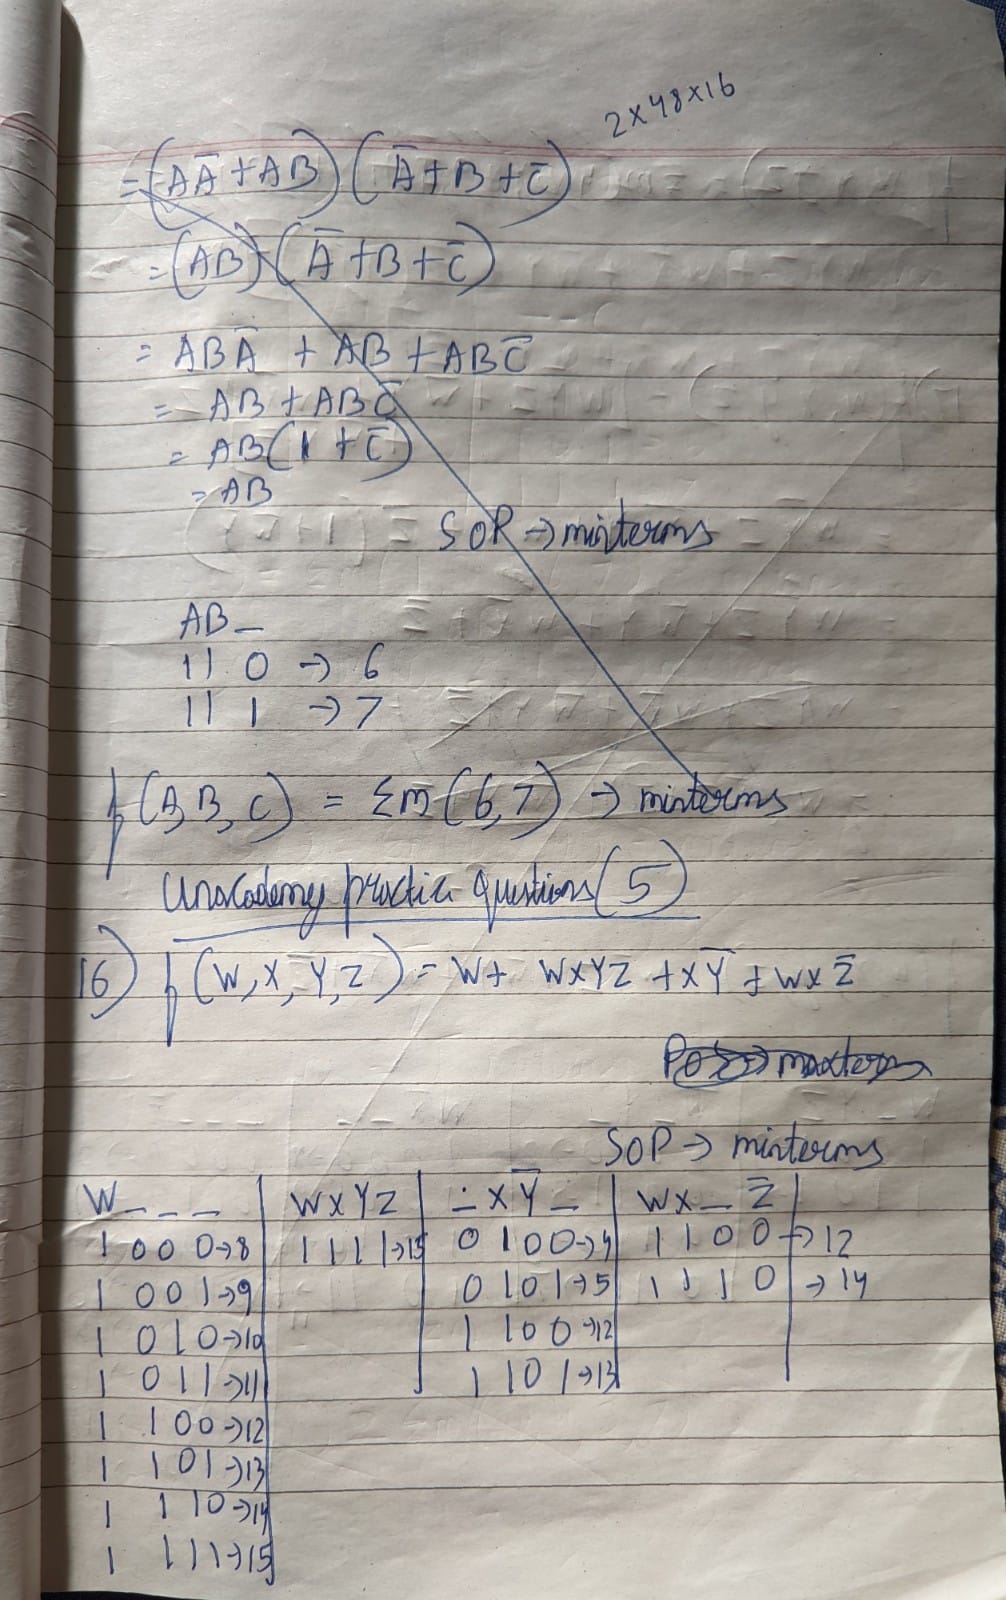 2×48×16
= (AĀ + AB) (Ā + B + C̄)
= (AB) (Ā + B + C̄)
= ABĀ + AB + ABC̄
= AB + ABC̄
= AB(1 + C̄)
= AB
SOP → minterms
AB_
11 0 → 6
11 1 → 7
f(A,B,C) = Σm(6,7) → minterms
Unacademy practice questions (5)
16) f(W,X,Y,Z) = W + WXYZ + XȲ + WXZ̄
SOP → minterms
W _ _ _ | WXYZ | _XȲ_ | WX_Z̄
1 000→8 | 1111→15 | 0 100→4 | 1100 → 12
1 001→9 | 0 101→5 | 1110 → 14
1 010→10 | 1 100→12
1 011→11 | 1 101→13
1 100→12
1 101→13
1 110→14
1 111→15